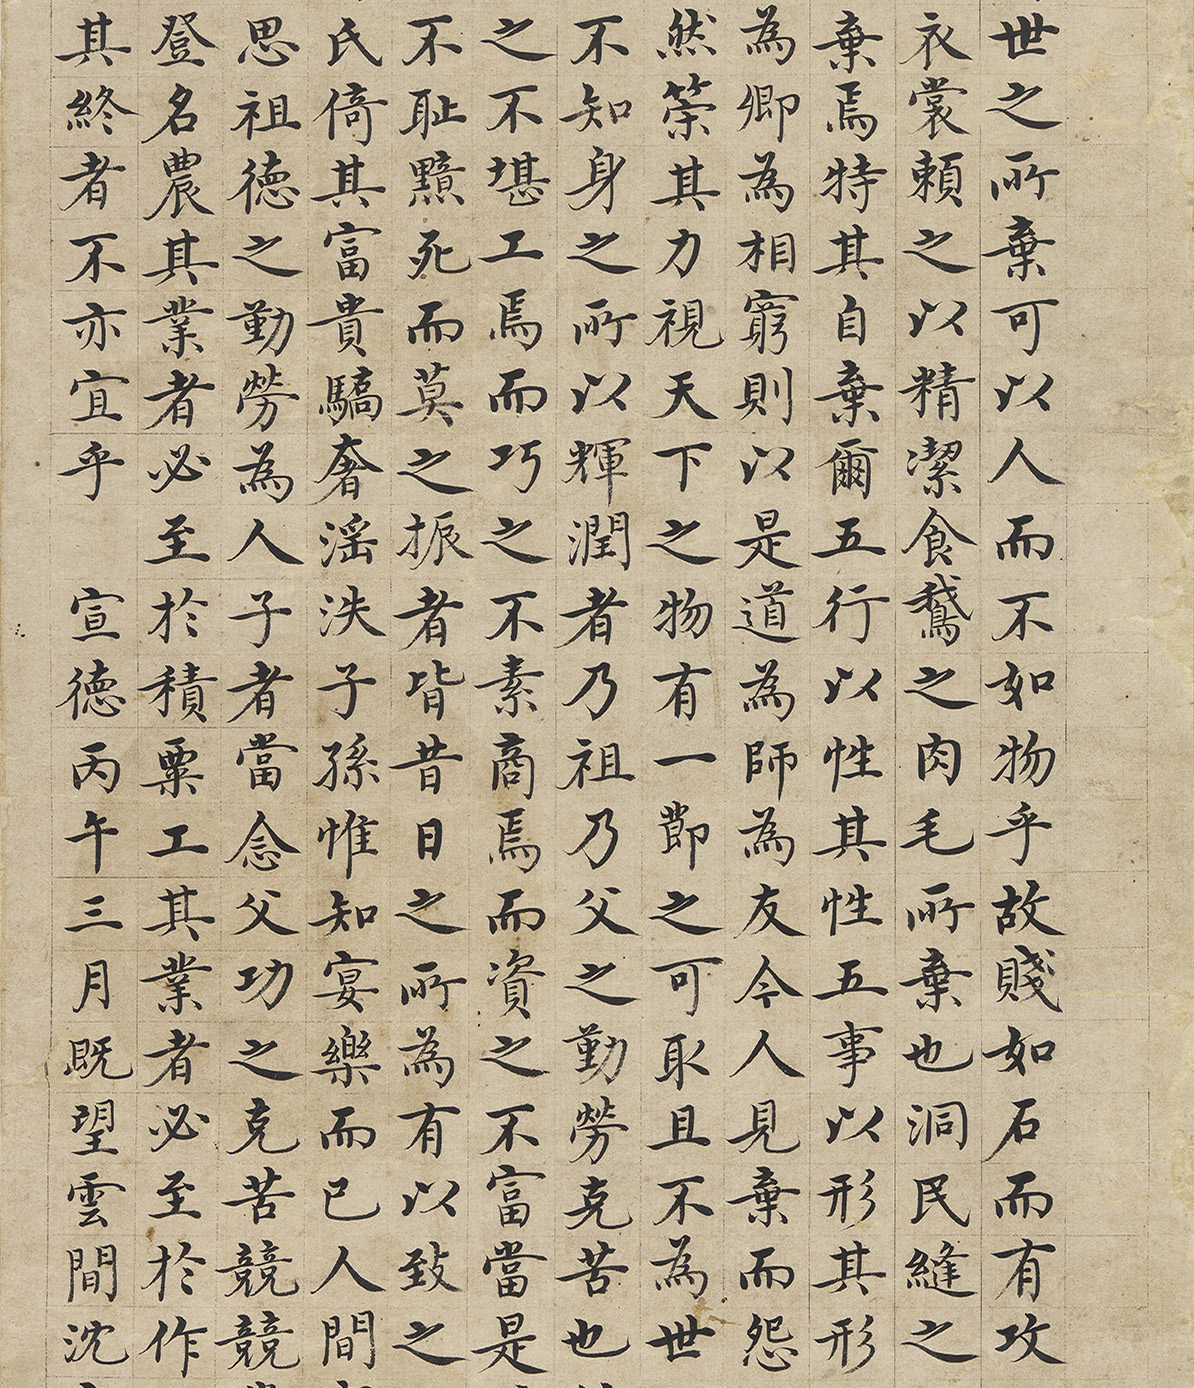 世之所棄可以人而不如物乎故賤如石而有攻
衣裳賴之以精潔食鵝之肉毛所棄也洞民縫之
棄焉特其自棄爾五行以性其性五事以形其形
為卿為相窮則以是道為師為友今人見棄而怨
然榮其力視天下之物有一節之可取且不為世
不知身之所以輝潤者乃祖乃父之勤勞克苦也
之不堪工焉而巧之不素商焉而資之不富當是
不耻黥死而莫之振者皆昔日之所為有以致之
氏倚其富貴驕奢滛泆子孫惟知宴樂而已人間
思祖德之勤勞為人子者當念父功之克苦競競
登名農其業者必至於積粟工其業者必至於作
其終者不亦宜乎 宣德丙午三月既望雲間沈